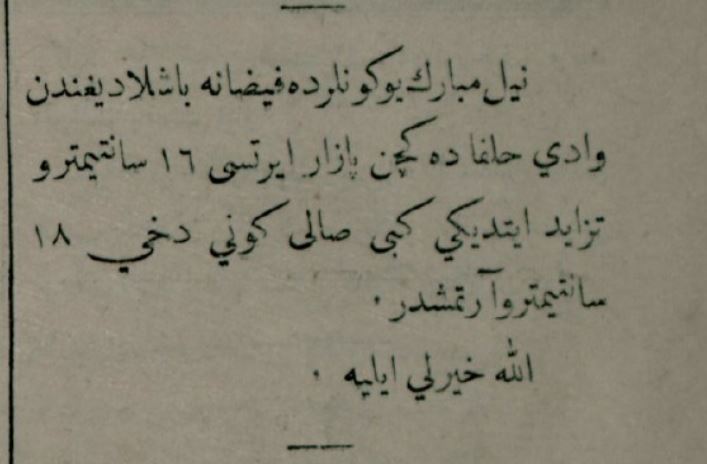 نيل مبارك بو كونلرده فيضانه باشلاديغندن
وادي حلفا ده كچن پازار ايرتسى ١٦ سانتيمترو
تزايد ايتديكي كبى صالى كوني دخي ١٨
سانتيمترو آرتمشدر ٠
الله خيرلي ايليه ٠